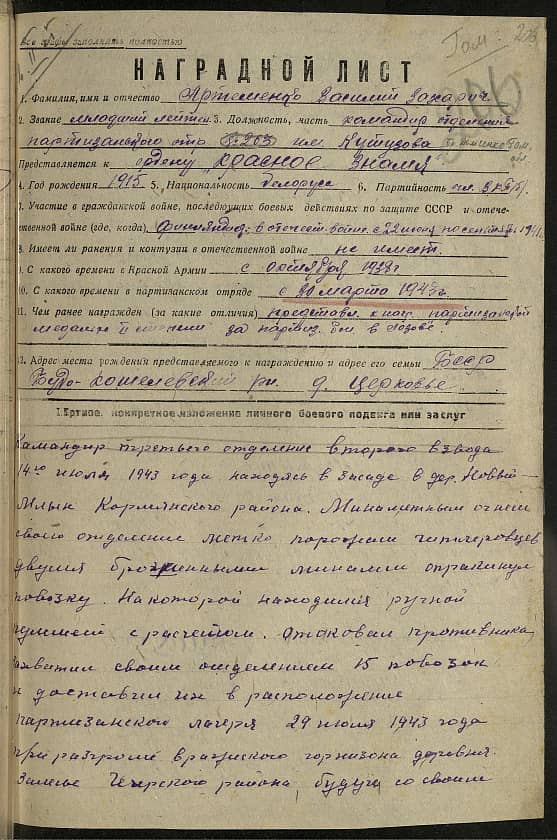 Все графы заполнять полностью
Гом. 203
НАГРАДНОЙ ЛИСТ
1. Фамилия, имя и отчество Артеменко Василий Захарич
2. Звание младший лейтен. 3. Должность, часть командир отделения
партизанского отр. 203 им. Кутузова
Представляется к ордену "Красное Знамя
4. Год рождения 1915 5. Национальность белорус 6. Партийность чл. ВКП/б/.
7. Участие в гражданской войне, последующих боевых действиях по защите СССР и отече-
ственной войне (где, когда) в отечест. войне с 22 июня по сентябрь 1941.
8. Имеет ли ранения и контузия в отечественной войне не имеет.
9. С какого времени в Красной Армии с октября 1938 г
10. С какого времени в партизанском отряде с 20 марта 1943 г.
11. Чем ранее награжден (за какие отличия) представл. к наг. партизанской
медалью II степени за
12. Адрес места рождения представляемого к награждению и адрес его семьи БССР
Буда-Кошелевский рн. д. Церковье
Краткое, конкретное изложение личного боевого подвига или заслуг
Командир третьего отделение второго взвода
14го июля 1943 года находясь в засаде в дер. Новый-
Млын Кормянского района. Минаметным огнем
своего отделения метко поражали гитлеровцев
двумя миномии опракинул
повозку. На которой находился ручной
пулимет с расчетом. Отаковал противника,
захватил своим отделением 15 повозок
и доставил их в расположение
партизанского лагеря 29 июля 1943 года
при разгроме вражиского горнизона деревня
Залесье Чечрского района, будучи со своим